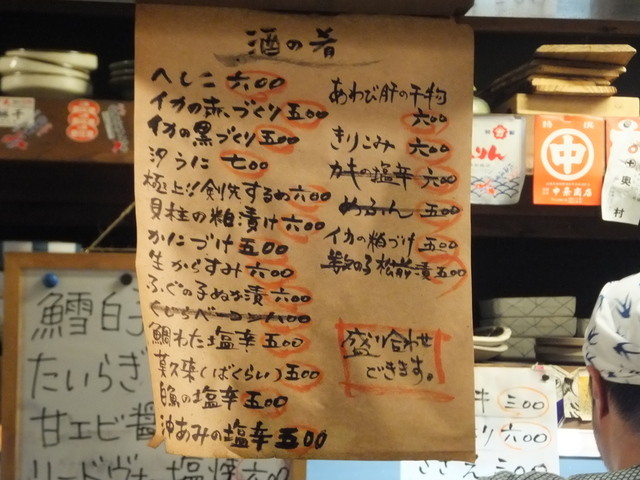 酒の肴
へしこ 六〇〇
イカの赤、づくり 五〇〇
イカの黒づくり 五〇〇
汐うに 七〇〇
極上!!剣先するめ 六〇〇
貝柱の粕漬け 六〇〇
かにづけ 五〇〇
生からすみ 六〇〇
ふぐの子ぬか漬 六〇〇
くじらベーコン 八〇〇
鯛わた塩辛 五〇〇
莫久来(ばくらい) 五〇〇
白魚の塩辛 五〇〇
沖あみの塩辛 五〇〇
あわび肝の干物
六〇〇
きりこみ 六〇〇
カキの塩辛 六〇〇
めふん 五〇〇
イカの粕づけ 五〇〇
数の子松前漬 五〇〇
盛り合わせ
できます。
鱈白子
たいらぎ
甘エビ醤
リードヴォー塩焼 六〇〇
三〇〇
り 六〇〇
さざえ 五〇〇
特撰
中
中番商店
りん
奥村